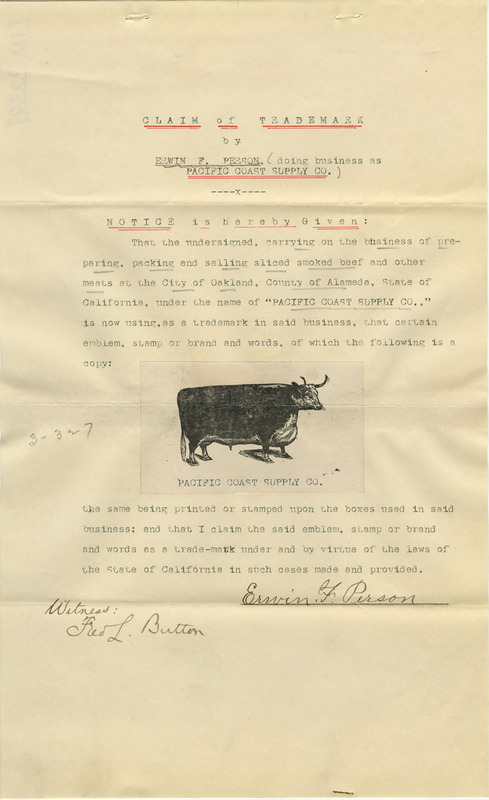 CLAIM of TRADEMARK
by
ERWIN F. PERSON, (doing business as
PACIFIC COAST SUPPLY CO.)
----x----
NOTICE is hereby Given:
That the undersigned, carrying on the business of pre-
paring, packing and selling sliced smoked beef and other
meats at the City of Oakland, County of Alameda, State of
California, under the name of "PACIFIC COAST SUPPLY CO.,"
is now using,as a trademark in said business, that certain
emblem, stamp or brand and words, of which the following is a
copy:
3-327
PACIFIC COAST SUPPLY CO.
the same being printed or stamped upon the boxes used in said
business; and that I claim the said emblem, stamp or brand
and words as a trade-mark under and by virtue of the laws of
the State of California in such cases made and provided.
Erwin F. Person
Witness:
Fred L. Button